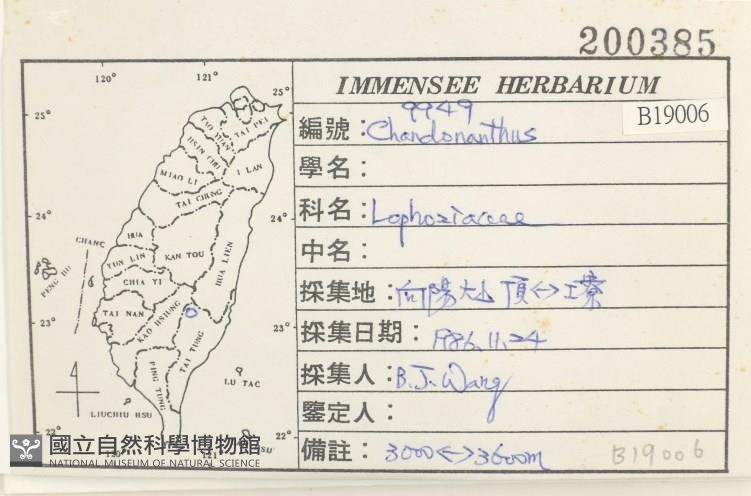 200385
IMMENSEE HERBARIUM
B19006
編號：9949
Chandonanthus
學名：
科名：Lophoziaceae
中名：
採集地：向陽大山頂<->工寮
採集日期：1986.11.24
採集人：B.J.Wang
鑒定人：
備註：3000<->3600m
B19006
120° 121°
25° 25°
TAO YUAN
TAI PEI
HSIN CHU
MIAO LI
I LAN
TAI CHUNG
24° 24°
CHANG HUA
HUA LIEN
NAN TOU
YUN LIN
PENG HU
CHIA YI
TAI NAN
KAO HSIUNG
23° 23°
TAI TUNG
PING TUNG
LU TAO
LIUCHIU HSU
22° 22°
120° 121°
國立自然科學博物館
NATIONAL MUSEUM OF NATURAL SCIENCE